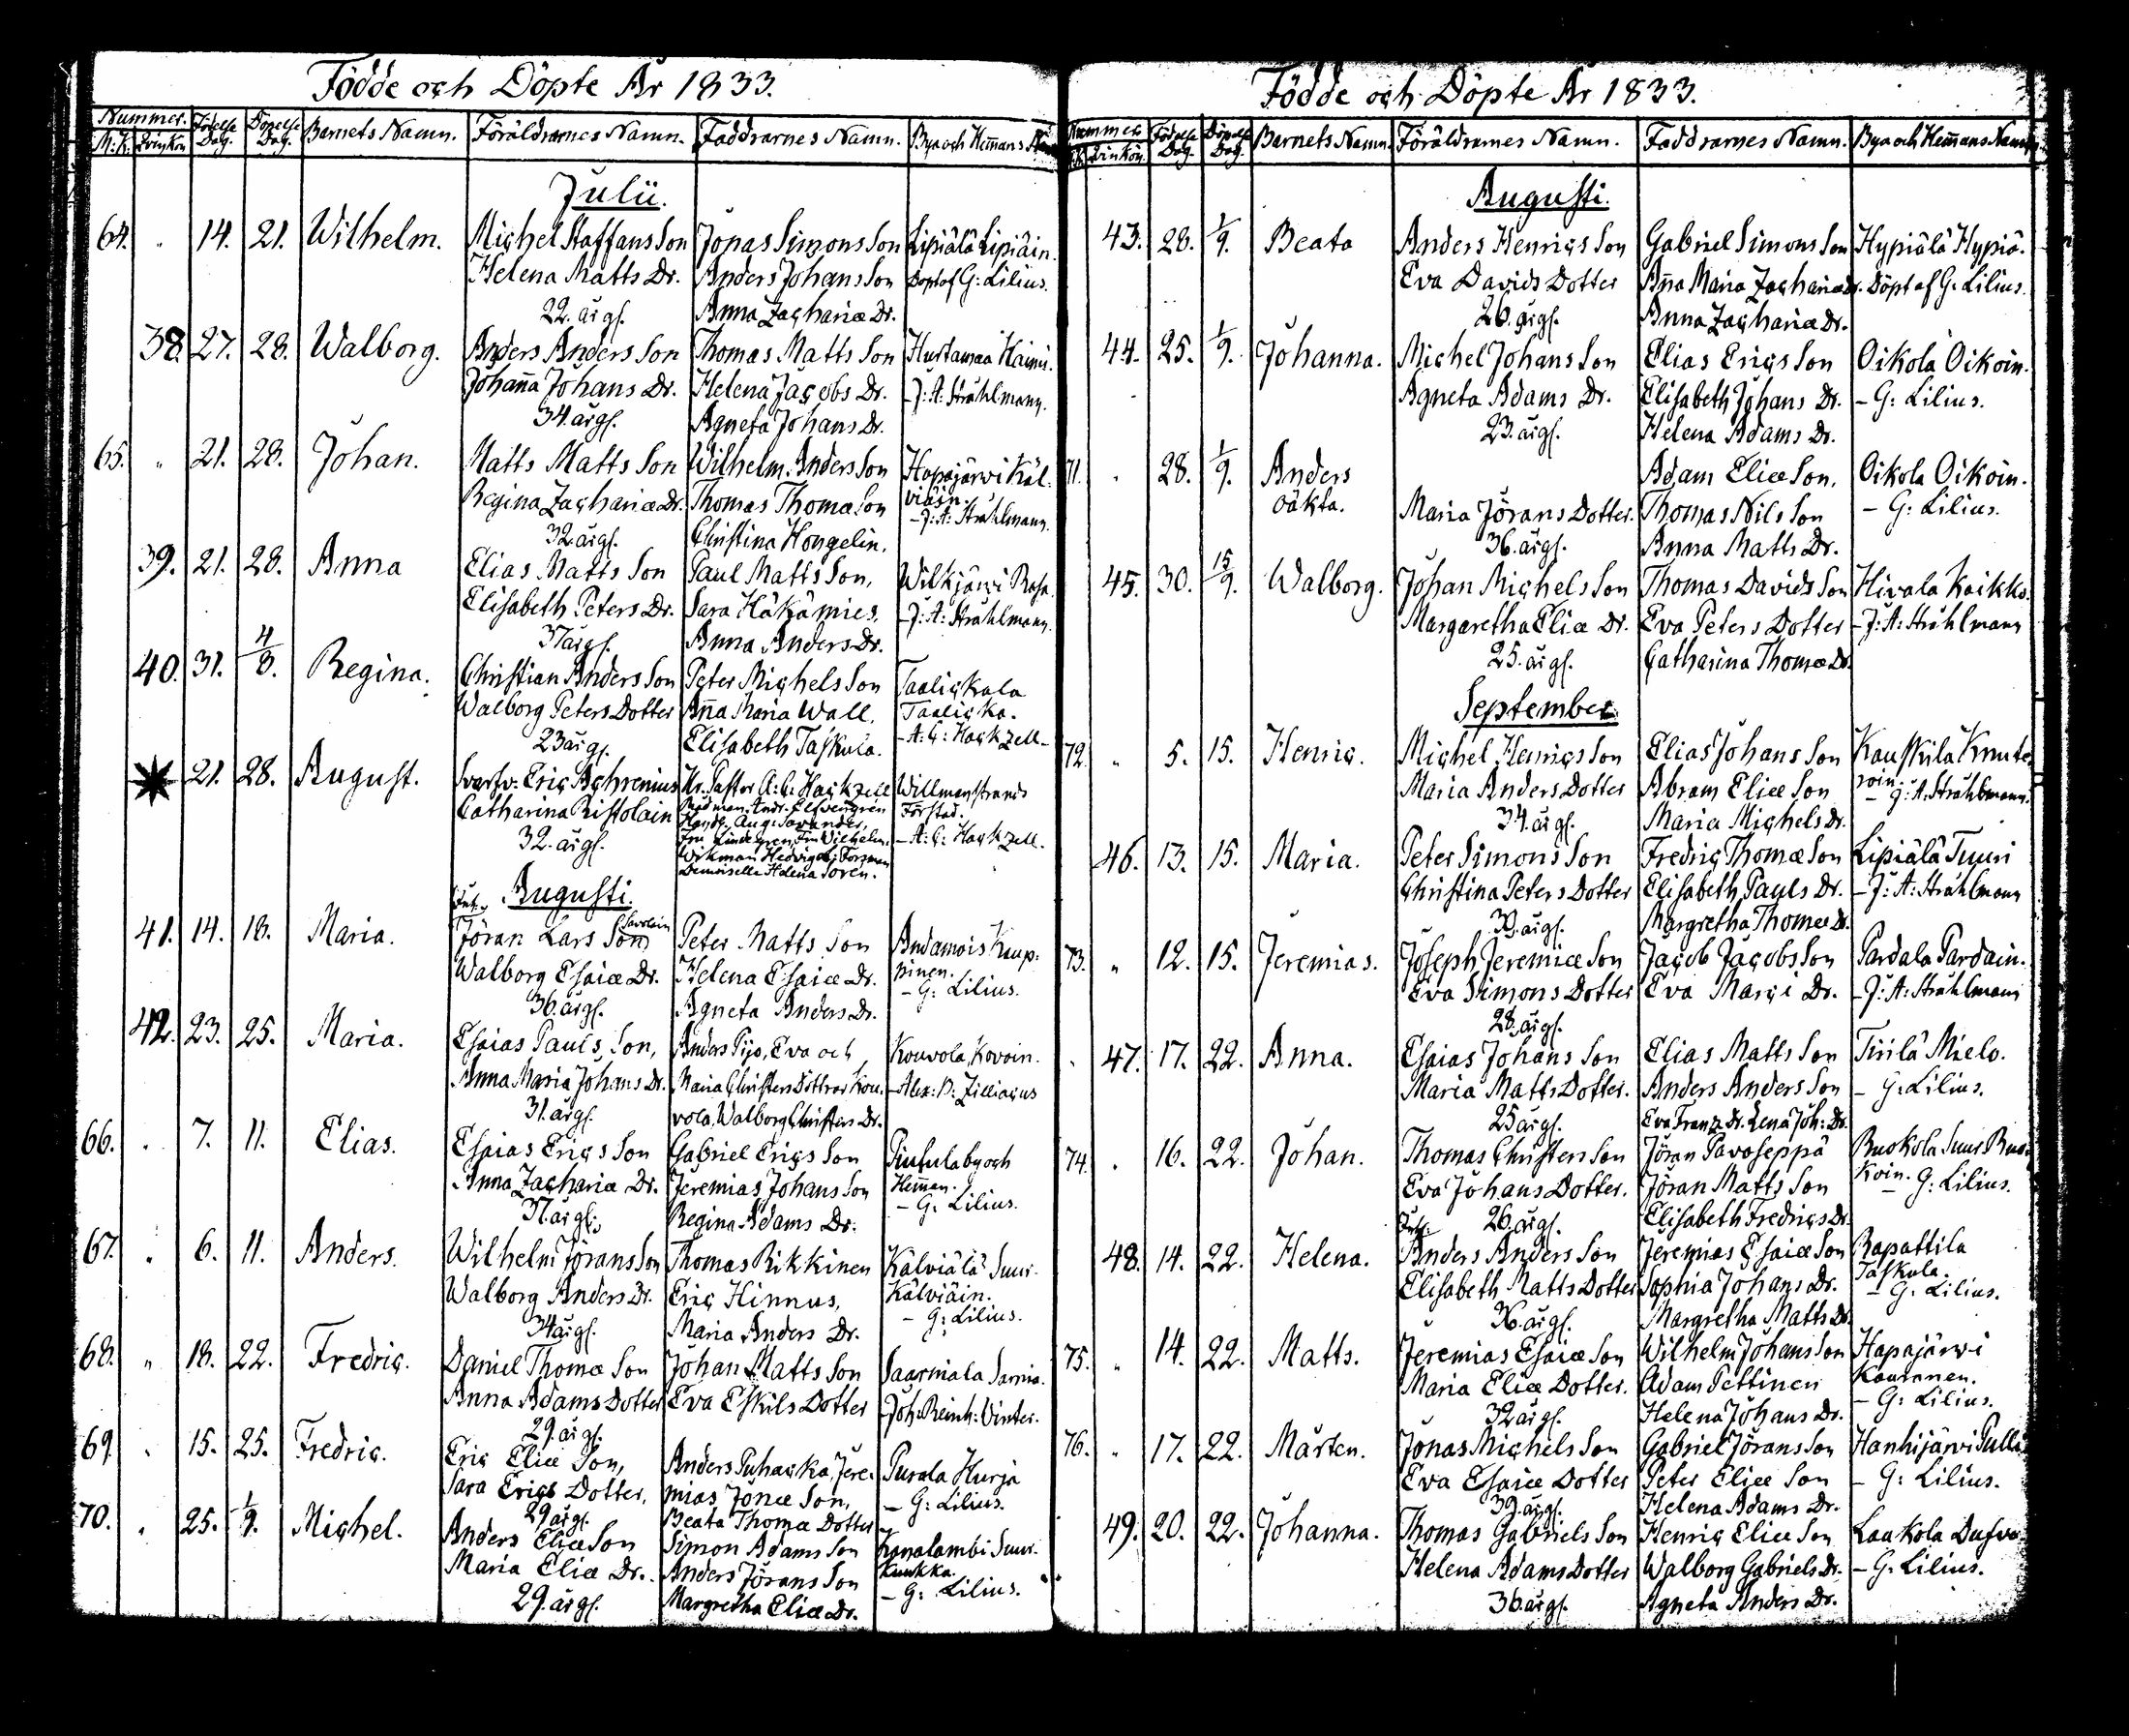 Födde och Döpte År 1833.
Nummer. Födelse Dag. Döpelse Dag. Barnets Namn. Föräldrarnes Namn. Faddrarnes Namn. By och Hem̄ans
M:K. Qvinkön
Julii.
64. " 14. 21. Wilhelm. Michel Staffans Son Jonas Simons Son Lipiälä Lipiäin.
Helena Matts Dr. Anders Johans Son Döpt af G: Lilius.
22. årgl. Anna Zachariæ Dr.
38. 27. 28. Walborg. Anders Anders Son Thomas Matts Son Hurtamaa Haimi.
Johan̄a Johans Dr. Helena Jacobs Dr. - J: A: Stråhlmann.
34. årgl. Agneta Johans Dr.
65. " 21. 28. Johan. Matts Matts Son Wilhelm Anders Son Hapajärwi Käl-
Regina Zachariæ Dr. Thomas Thomæ Son viäin.
- J: A: Stråhlmann.
32. årgl. Christina Hongelin.
39. 21. 28. Anna Elias Matts Son Paul Matts Son, Wilkjärwi
Elisabeth Peters Dr. Sara Häkämies, - J: A: Stråhlmann.
37 årgl. Anna Anders Dr.
40. 31. 4/8. Regina. Christian Anders Son Peter Michels Son Taalickala
Walborg Peters Dotter An̄a Maria Wall, Taalicka.
23 årgl. Elisabeth Taskula. - A: C: Hackzell -
21. 28. August. Svarfv: Eric Achrenius Hr. Pastor A: C: Hackzell Willmanstrands
Catharina Ristolain Rådman Andr. Elfvengren Förstad.
Handl. Aug: Savander,
32. årgl. Fru Lindegren, Fru Wilhelm. - A: C: Hackzell.
Wikman Hedvig Forsman
Demoiselle Helena Soren.
Inh. Augusti.
41. 14. 18. Maria. Jöran Lars Son Savolain Peter Matts Son Andamois Kaup-
Walborg Esaiæ Dr. Helena Esaiæ Dr. pinen.
- G: Lilius.
36. årgl. Agneta Anders Dr.
42. 23. 25. Maria. Esaias Pauls Son, Anders Pijo, Eva och Kouvola Kovoin.
Anna Maria Johans Dr. Maria Christers Döttrar Kou- - Alex: D: Zilliacus
31. årgl. vola, Walborg Christers Dr.
66. " 7. 11. Elias. Esaias Erics Son Gabriel Erics Son Piutula by och
Anna Zachariæ Dr. Jeremias Johans Son Hem̄an.
- G: Lilius.
37. årgl. Regina Adams Dr.
67. " 6. 11. Anders. Wilhelm Jörans Son Thomas Rikkinen Kälviälä Suur-
Walborg Anders Dr. Eric Hinnus, Kälviäin.
- G: Lilius.
34 årgl. Maria Anders Dr.
68. " 18. 22. Fredric. Daniel Thomæ Son Johan Matts Son Saarmala Sarnia.
Anna Adams Dotter Eva Eskils Dotter - Joh: Reinh: Vinter.
29. årgl.
69. " 15. 25. Fredric. Eric Eliæ Son, Anders Puhacka, Jere- Purala Hurja
Sara Erics Dotter, mias Jonæ Son, - G: Lilius.
29 årgl. Beata Thomæ Dotter
70. " 25. 1/9. Michel. Anders Eliæ Son Simon Adams Son Kanalambi Suur-
Maria Eliæ Dr. Anders Jörans Son Kuukka.
- G: Lilius.
29. årgl. Margretha Eliæ Dr.
Födde och Döpte År 1833.
Nummer Födelse Dag. Döpelse Dag. Barnets Namn Föräldrarnes Namn. Faddrarnes Namn. By och Hem̄ans Namn
Qvinkön.
Augusti.
43. 28. 1/9. Beata Anders Henrics Son Gabriel Simons Son Hypiälä Hypiä.
Eva Davids Dotter An̄a Maria Zachariæ Dr. Döpt af G: Lilius.
26. årgl. Anna Zachariæ Dr.
44. 25. 1/9. Johanna. Michel Johans Son Elias Erics Son Oikola Oikoin.
Agneta Adams Dr. Elisabeth Johans Dr. - G: Lilius.
23. årgl. Helena Adams Dr.
71. " 28. 1/9. Anders Adam Eliæ Son, Oikola Oikoin.
oäkta. Maria Jörans Dotter. Thomas Nils Son - G: Lilius.
36. årgl. Anna Matts Dr.
45. 30. 15/9. Walborg. Johan Michels Son Thomas Davids Son Hivala Kaikko.
Margaretha Eliæ Dr. Eva Peters Dotter - J: A: Stråhlmann
25. årgl. Catharina Thomæ Dr.
September.
72. " 5. 15. Henric. Michel Henrics Son Elias Johans Son Kauskila Knute-
Maria Anders Dotter Abram Eliæ Son roin.
- J: A: Stråhlmann.
34. årgl. Maria Michels Dr.
46. 13. 15. Maria. Peter Simons Son Fredric Thomæ Son Lipiälä Tuuri
Christina Peters Dotter Elisabeth Pauls Dr. - J: A: Stråhlmann
årgl. Margretha Thomæ Dr.
73. " 12. 15. Jeremias. Joseph Jeremiæ Son Jacob Jacobs Son Pardala Pardain.
Eva Simons Dotter Eva Marci Dr. - J: A: Stråhlmann
28. årgl.
47. 17. 22. Anna. Esaias Johans Son Elias Matts Son Tirilä Mielo.
Maria Matts Dotter. Anders Anders Son - G: Lilius.
25 årgl. Eva Franz Dr. Lena Joh: Dr.
74. " 16. 22. Johan. Thomas Christers Son Jöran Pavoseppä Ruokola Suur Ruo-
Eva Johans Dotter. Jöran Matts Son koin. - G: Lilius.
Inh. 26. årgl. Elisabeth Fredrics Dr.
48. 14. 22. Helena. Anders Anders Son Jeremias Esaiæ Son Rapattila
Elisabeth Matts Dotter Sophia Johans Dr. Taskula.
- G: Lilius.
årgl. Margretha Matts Dr.
75. " 14. 22. Matts. Jeremias Esaiæ Son Wilhelm Johans Son Hapajärwi
Maria Eliæ Dotter. Adam Pettinen Kauranen.
- G: Lilius.
32 årgl. Helena Johans Dr.
76. " 17. 22. Mårten. Jonas Michels Son Gabriel Jörans Son Hanhijärvi Pulli
Eva Esaiæ Dotter Peter Eliæ Son - G: Lilius.
39. årgl. Helena Adams Dr.
49. 20. 22. Johanna. Thomas Gabriels Son Henric Eliæ Son Laakola Dufva
Helena Adams Dotter Walborg Gabriels Dr. - G: Lilius.
36. årgl. Agneta Anders Dr.